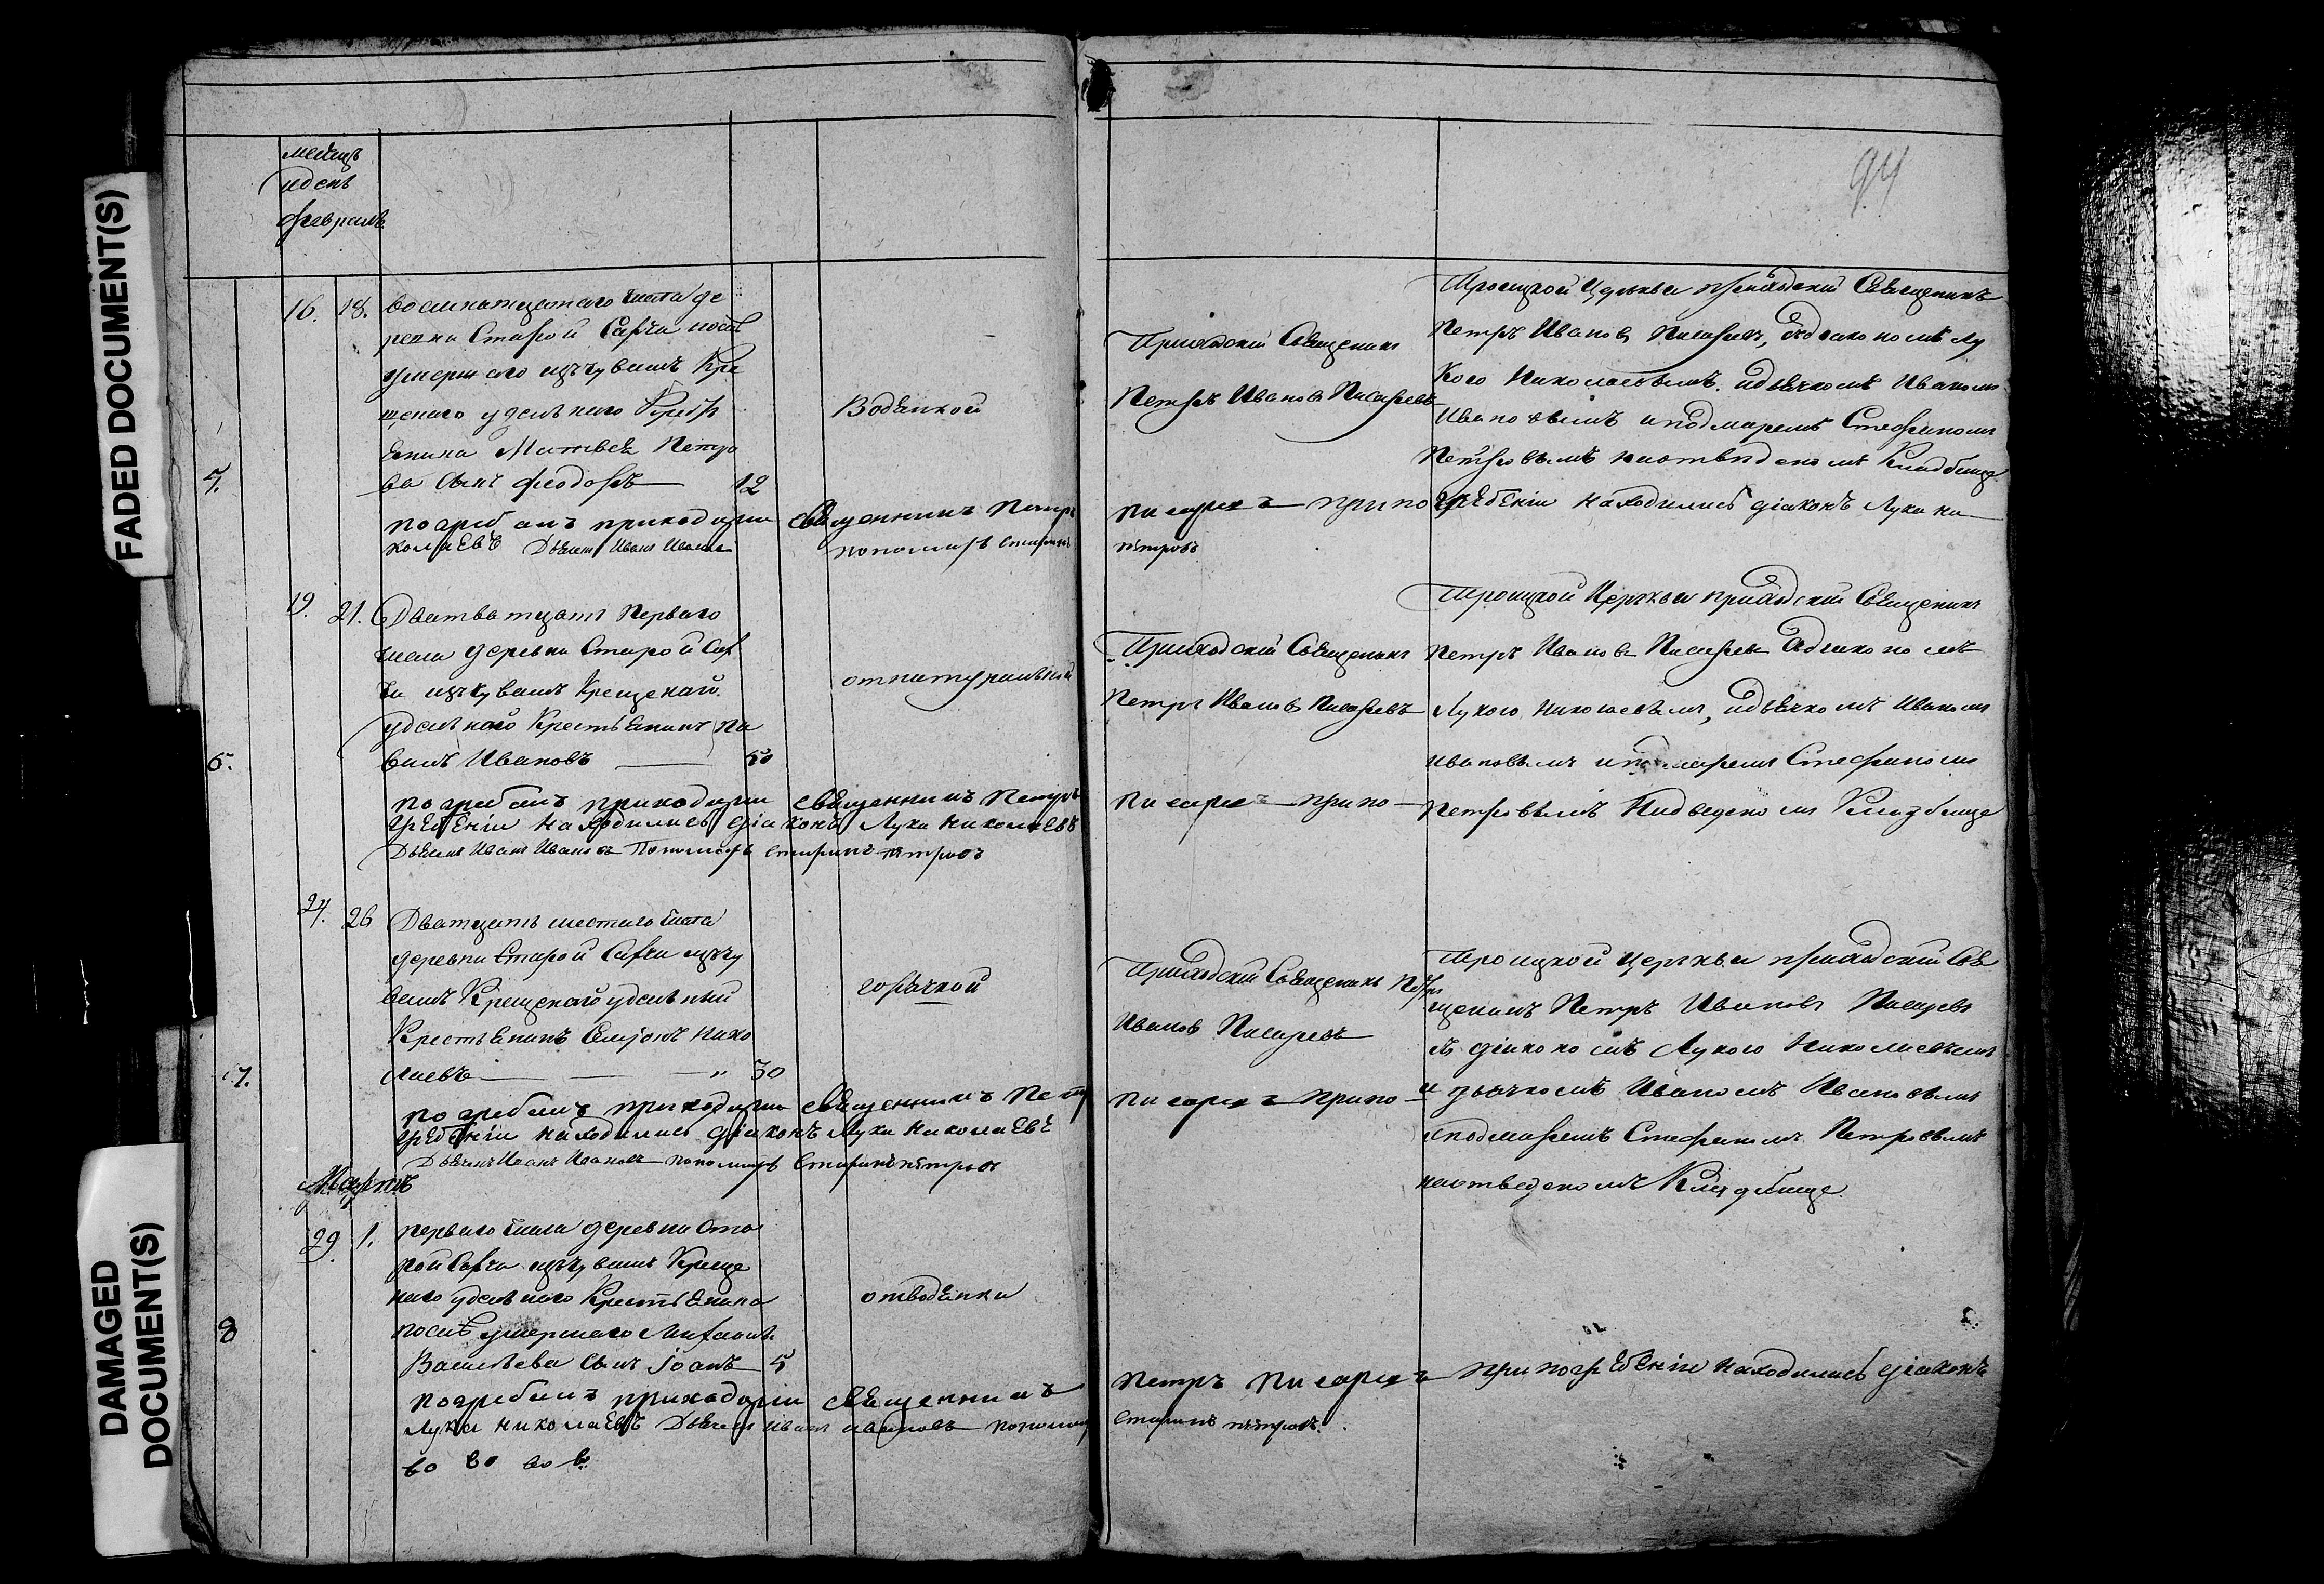 FADED DOCUMENT(S)
DAMAGED
DOCUMENT(S)
месяцъ
идень
февраль
94
16. 18.
деревни Старой Сарчи после
умершаго изъ чувашъ Кре
щенаго удельнаго Крестъ
Енина Матвея Петро
ва сынъ Феодоръ 12
Водянкой
Приходскій Священникъ
Петръ Ивановъ Писаревъ
Троицкой Церкви приходскій Священникъ
Петръ Ивановъ Писаревъ, здіакономъ Лу
кою Николаевымъ идьячкомъ Иваномъ
Ивановымъ Стефаномъ
Петровымъ наотведеномъ Кладбище
погребалъ приходский священникъ Петръ
Писаревъ при по
гребеніи находились діаконъ Лука Ни
колаевъ Дьячекъ Иванъ Ивановъ
пономарь Стефанъ
Петровъ
19. 21. Дватватцать Перваго
числа деревни Старой Сар
чи изъ чувашъ Крещенай
удельнаго КрестьЕнинъ Па
велъ Ивановъ 50
отнатуральной
Приходской Священникъ
Петръ Ивановъ Писаревъ
Троицкой Церькви приходскій Священикъ
Петръ Ивановъ Писаревъ здиакономъ
Лукою Николаевымъ, идьячкомъ Иваномъ
Ивановымъ Стефаномъ
Петровымъ Кладбище
6.
погребалъ приходский священникъ Петръ
Писаревъ при по
гребеніи находились діаконъ Лука Николаевъ
Дьячекъ Иванъ Ивановъ Пономарь Стефанъ Петровъ
24. 26 Дватцать шестаго числа
деревни Старой Сарчи изъ чу
вашъ Крещенай удельный
КрестьЕнинъ Семіонъ Нико
лаевъ 30
горячкой
Приходской Священникъ Петръ
Ивановъ Писаревъ
Троицкой Церкви приходский Свя
щеникъ Петръ Ивановъ Писаревъ
съ діакономъ Лукою Николаевымъ
и дьячкомъ Иваномъ Ивановымъ
Стефаномъ Петровымъ
наотведеномъ Кладбище
7.
погребалъ приходский священникъ Петръ
Писаревъ при по
гребеніи находились діаконъ Лука Николаевъ
Дьячекъ Иванъ Ивановъ пономарь Стефанъ Петровъ
Мартъ
29. 1. перваго числа деревни Ста
рой Сарчи изъ чувашъ Креще
наго удельнаго КрестьЕнина
после умершаго
Васильева сынъ Іоанъ 5
отводянки
8
погребалъ приходский священникъ
Петръ Писаревъ при погребеніи находились діаконъ
Лука Николаевъ Дьячекъ Иванъ Ивановъ пономарь
Стефанъ Петровъ
во во во в